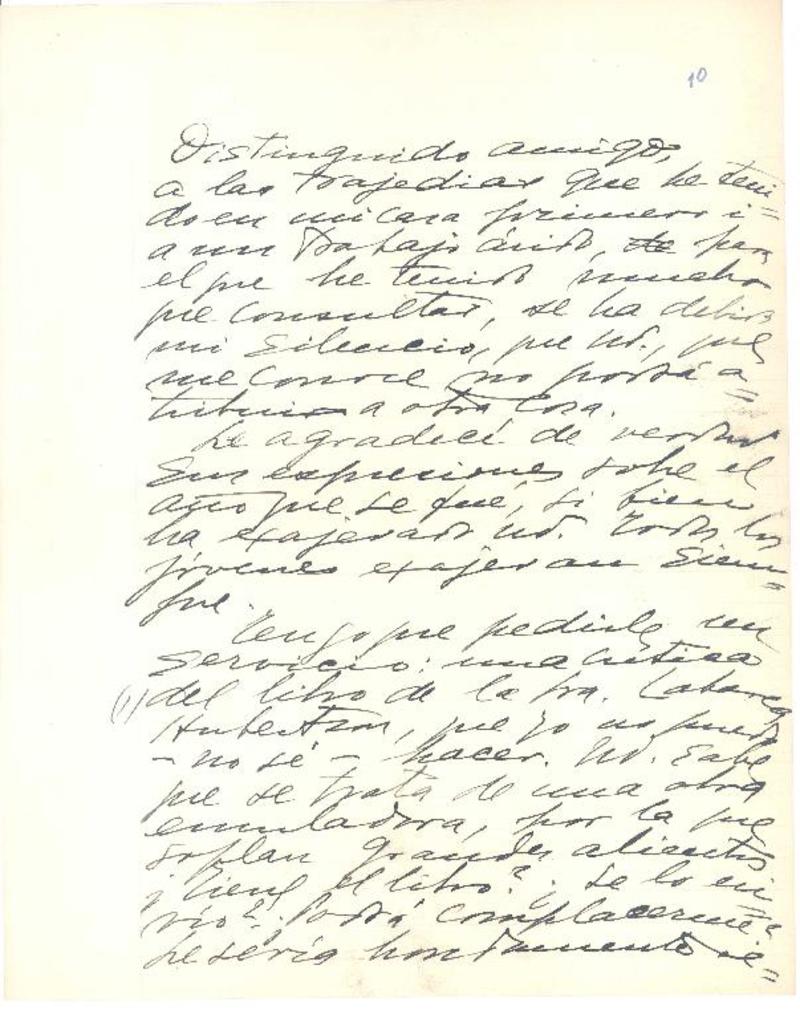 10
Distinguido amigo,
a las trajedias que he teni=
do en mi casa primero i
a un trabajo árido, de para
el que he tenido mucho
que consultar, se ha debido
mi silencio, que Ud., que
me conoce no podrá a=
tribuir a otra cosa.
Le agradecí de verdad
sus expresiones sobre el
año que se fué, si bien
ha exajerado Ud. Todos los
jóvenes exajeran siem=
pre.
Tengo que pedirle un
servicio: una crítica
(1) del libro de la Sra. Labarca
Hubertson, que yo no puedo
- no sé - hacer. Ud. sabe
que se trata de una obra
emuladora, por la que
soplan grandes alientos
¿Tiene el libro? ¿Se lo en=
vío? ¿Podrá complacerme?
Le sería hondamente re=